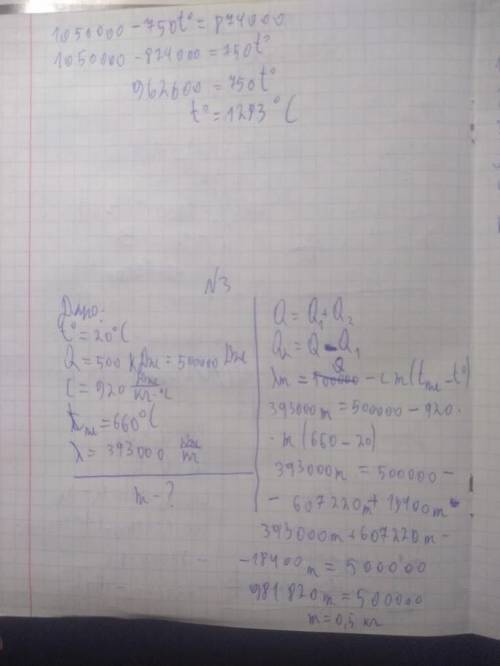 1050000 - 750t° = 874000
1050000 - 874000 = 750t°
962600 = 750t°
t° = 1293°C
N3
Дано:
t° = 20°C
Q = 500 кДж = 500000 Дж
C = 920 Дж/кг·°C
tпл = 660°C
λ = 393000 Дж/кг
m - ?
Q = Q₁ + Q₂
Q₂ = Q - Q₁
λm = Q - cm(tпл - t°)
393000m = 500000 - 920 ·
· m(660 - 20)
393000m = 500000 -
- 607220m + 18400m
393000m + 607220m -
- 18400m = 500000
981820m = 500000
m = 0,5 кг